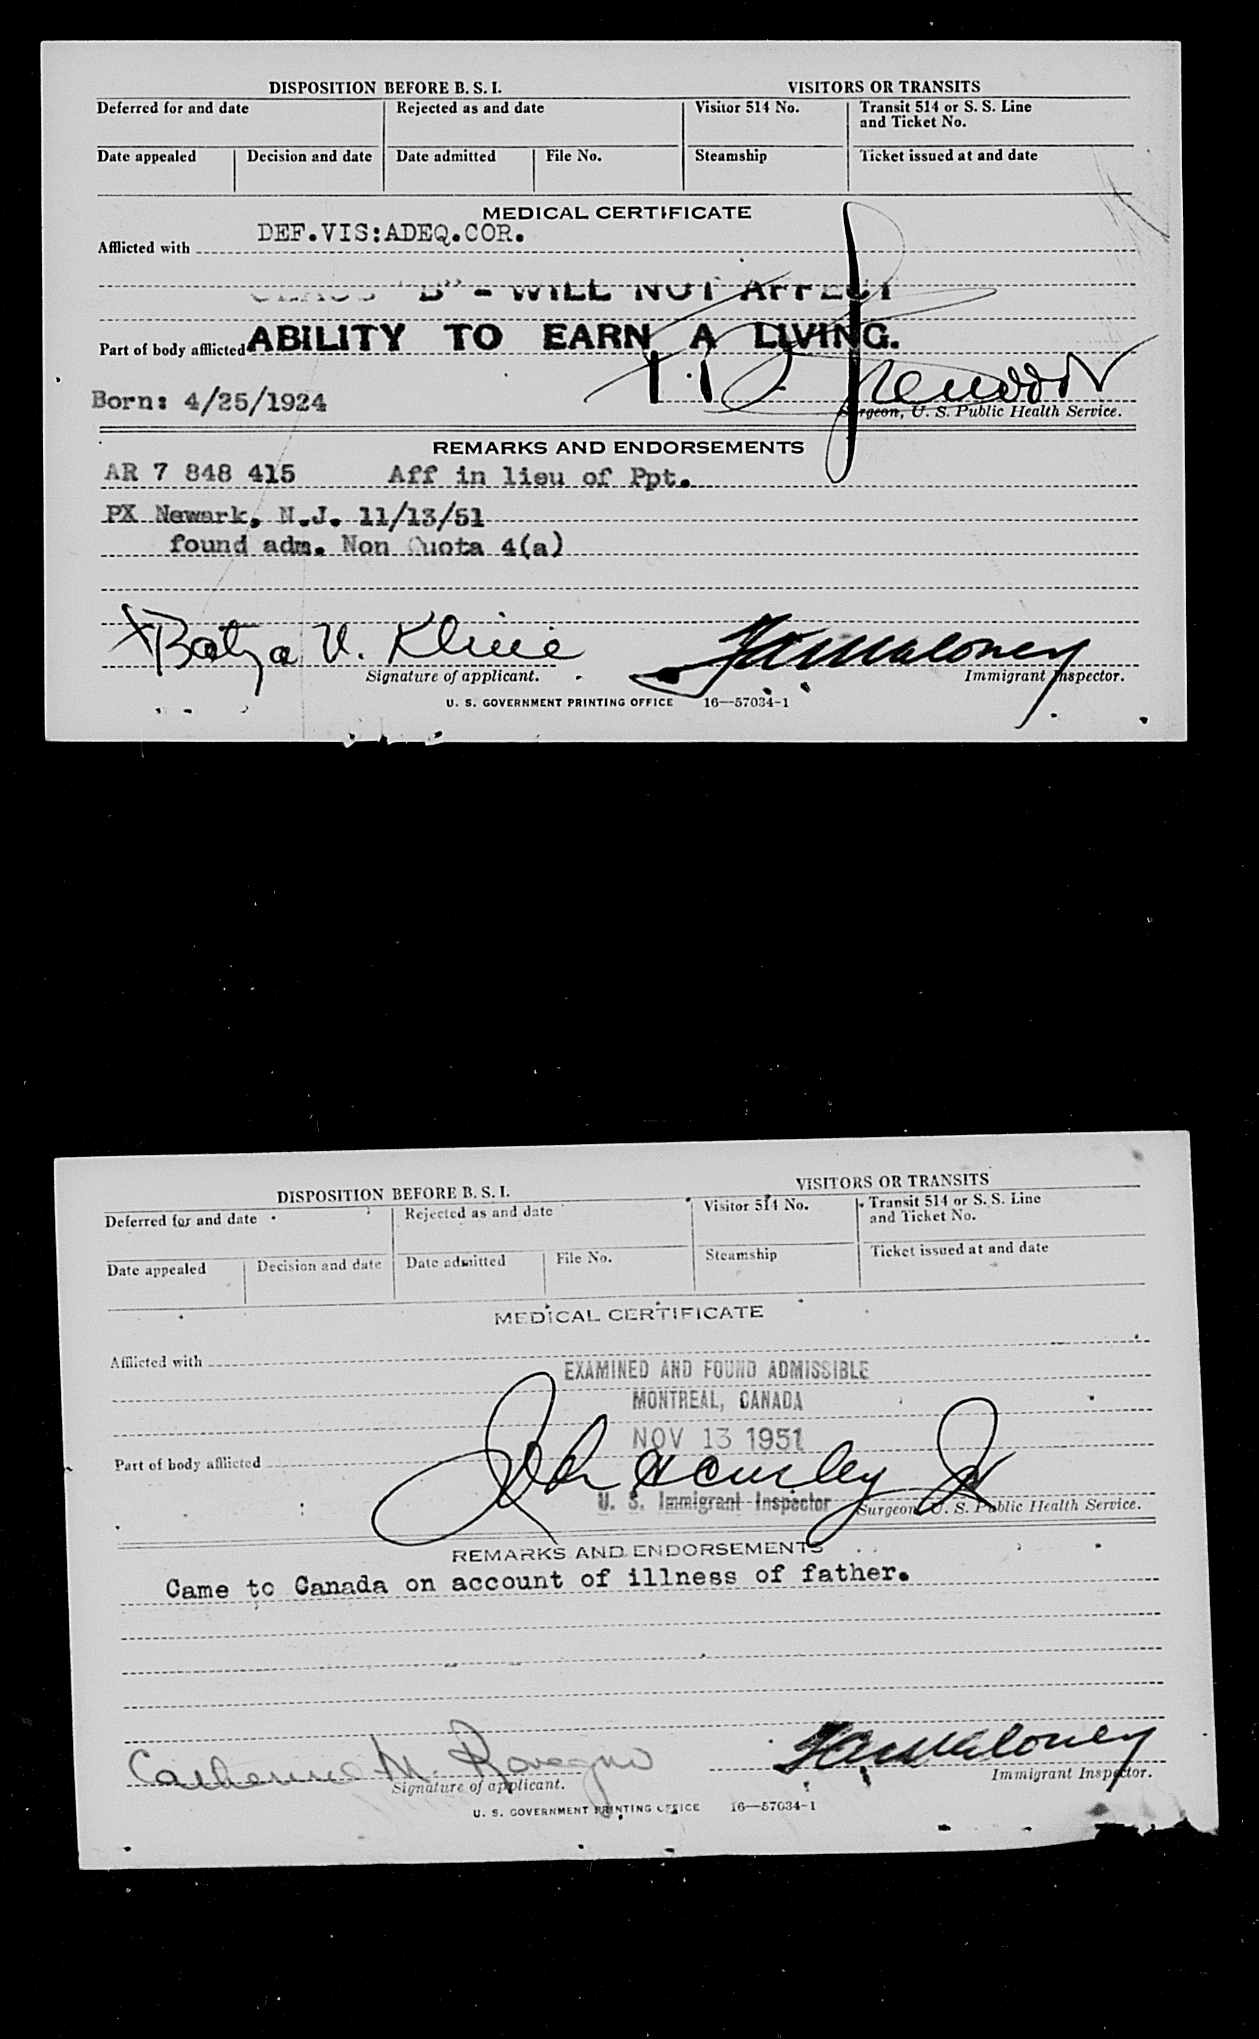 DISPOSITION BEFORE B. S. I.
VISITORS OR TRANSITS
Deferred for and date
Rejected as and date
Visitor 514 No.
Transit 514 or S. S. Line
and Ticket No.
Date appealed
Decision and date
Date admitted
File No.
Steamship
Ticket issued at and date
MEDICAL CERTIFICATE
Afflicted with DEF.VIS:ADEQ.COR.
CLASS "B" - WILL NOT AFFECT
Part of body afflicted ABILITY TO EARN A LIVING.
Born: 4/25/1924
Surgeon, U. S. Public Health Service.
REMARKS AND ENDORSEMENTS
AR 7 848 415 Aff in lieu of Ppt.
PX Newark, N.J. 11/13/51
found adm. Non Quota 4(a)
X Batya V. Kline
Signature of applicant.
Maloney
Immigrant Inspector.
U. S. GOVERNMENT PRINTING OFFICE 16—57034-1
DISPOSITION BEFORE B. S. I.
VISITORS OR TRANSITS
Deferred for and date
Rejected as and date
Visitor 514 No.
Transit 514 or S. S. Line
and Ticket No.
Date appealed
Decision and date
Date admitted
File No.
Steamship
Ticket issued at and date
MEDICAL CERTIFICATE
Afflicted with
EXAMINED AND FOUND ADMISSIBLE
MONTREAL, CANADA
NOV 13 1951
Part of body afflicted
John Hawley Jr
U. S. Immigrant Inspector
Surgeon, U. S. Public Health Service.
REMARKS AND ENDORSEMENTS
Came to Canada on account of illness of father.
Catherine M. Rovegno
Signature of applicant.
Maloney
Immigrant Inspector.
U. S. GOVERNMENT PRINTING OFFICE 16—57034-1